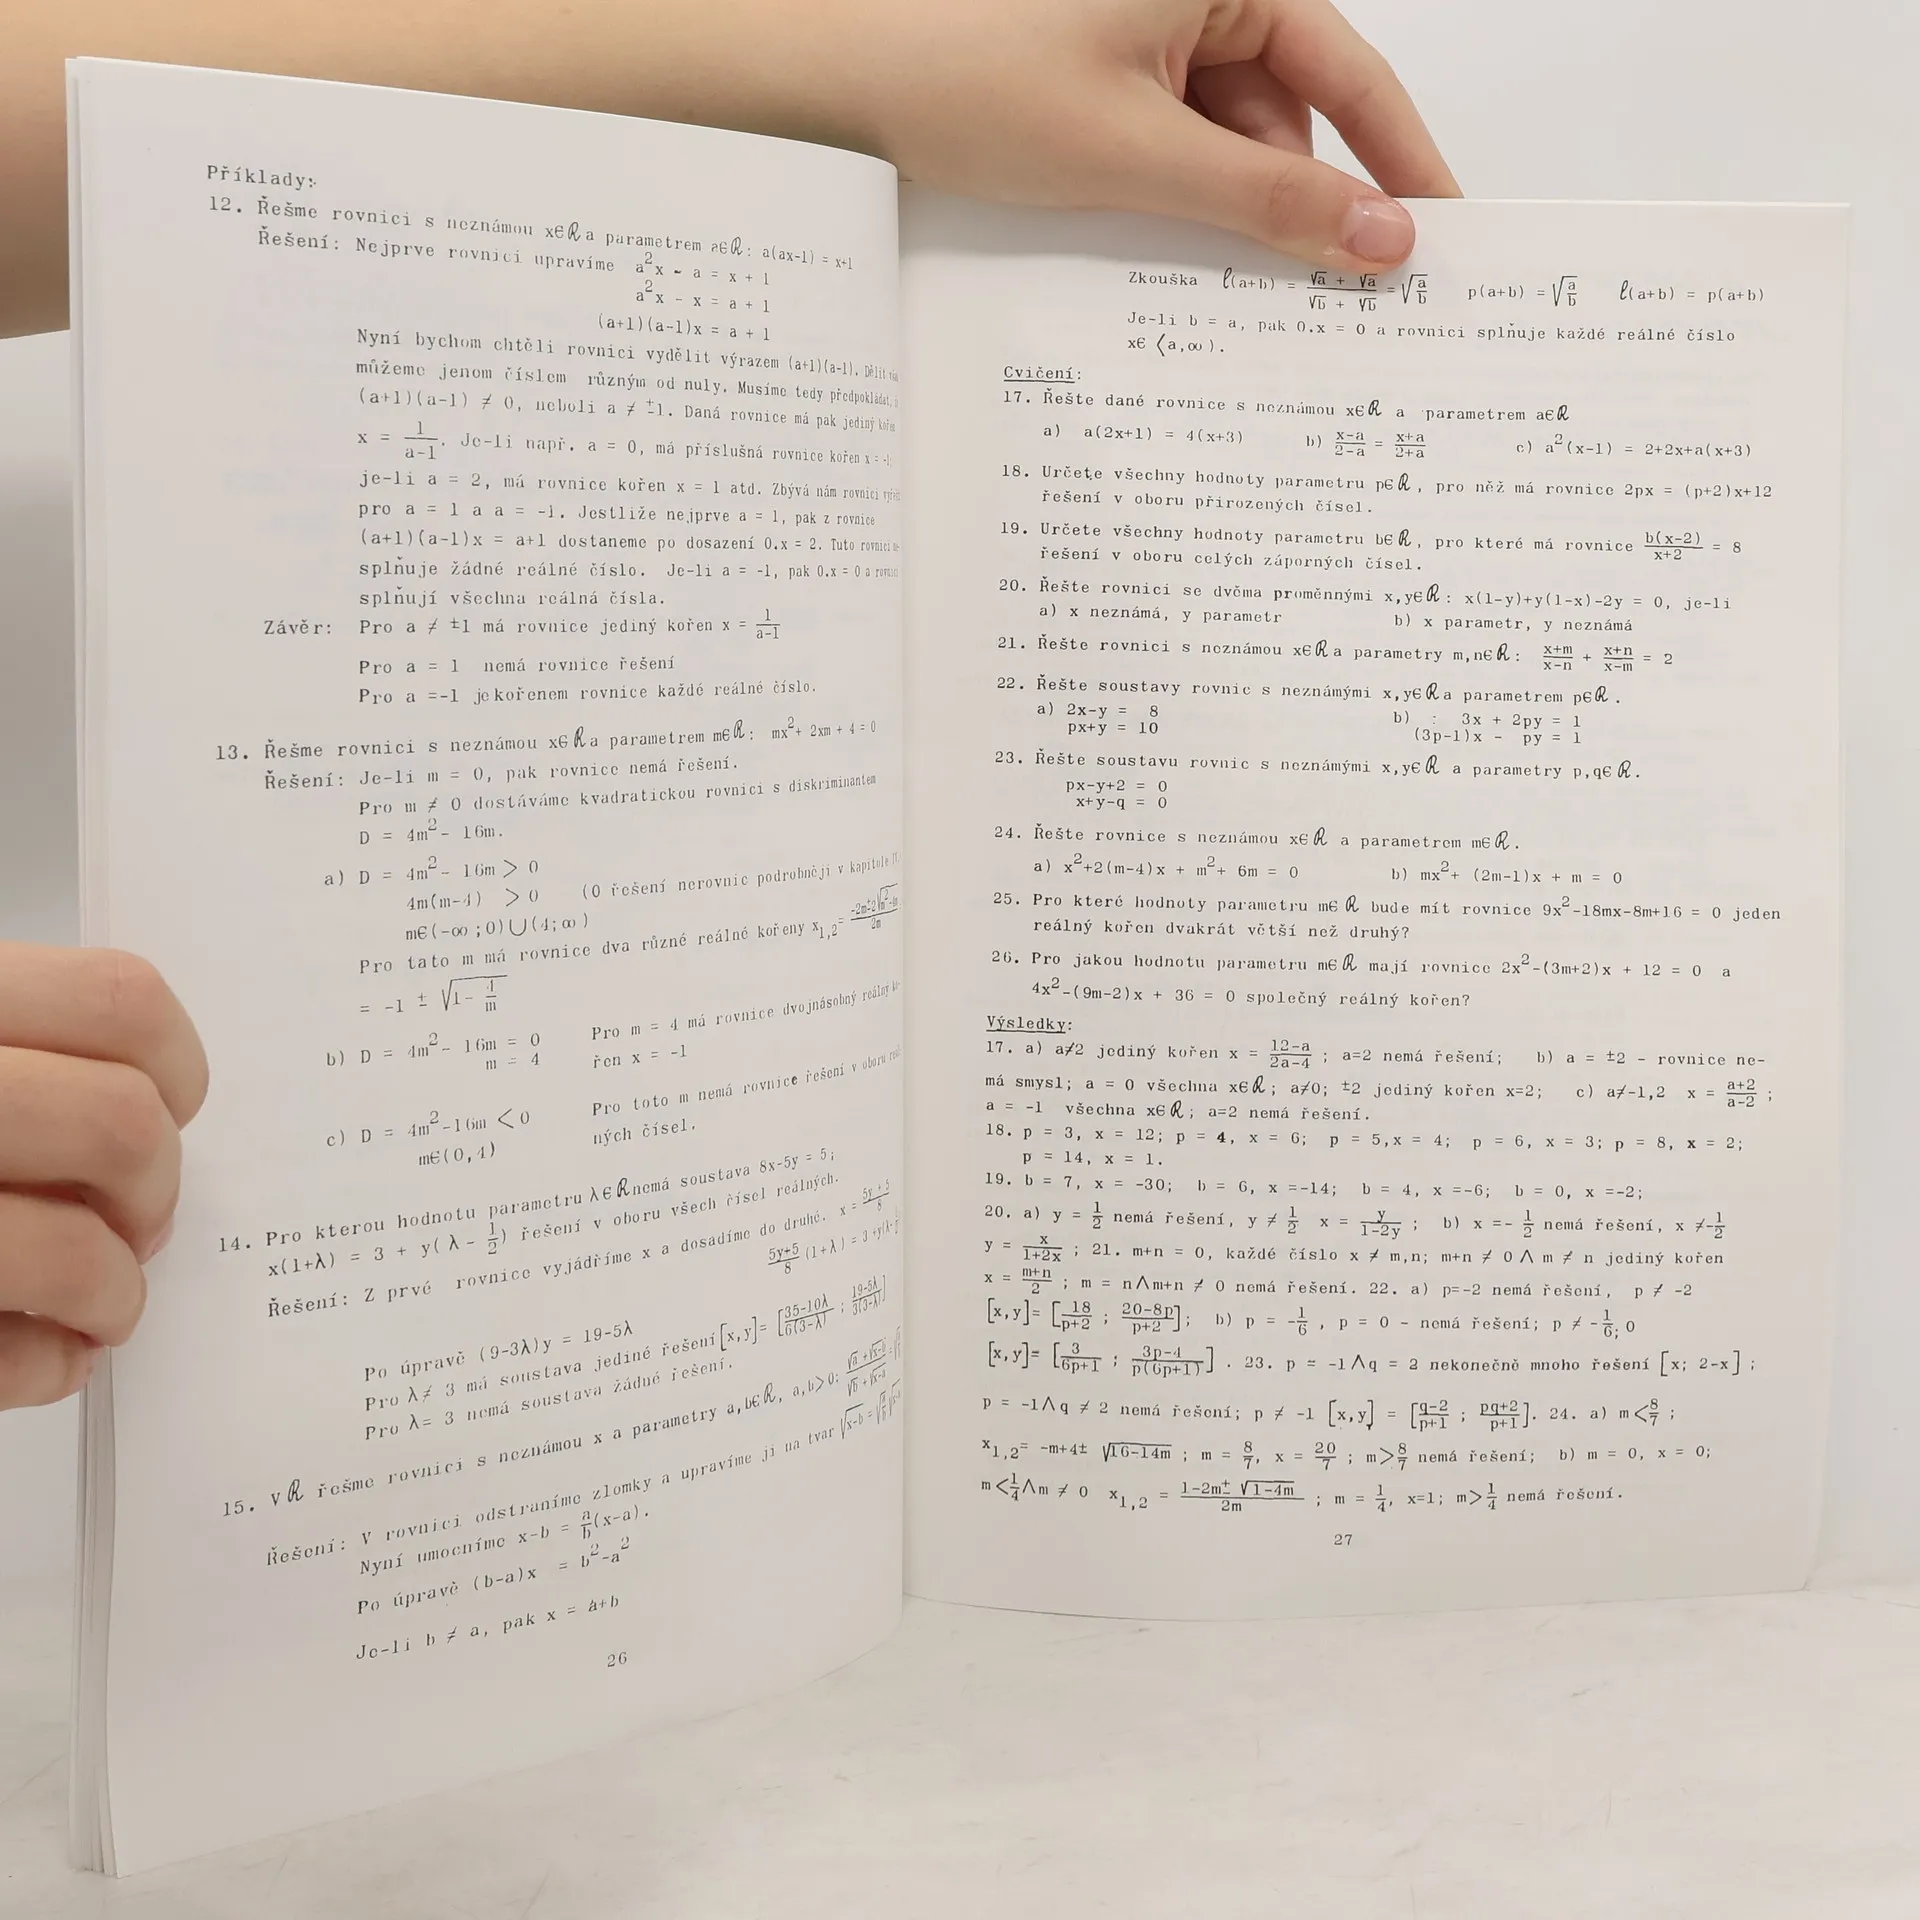 Příklady:
12. Řešme rovnici s neznámou x∈R a parametrem a∈R: a(ax-1) = x+1
Řešení: Nejprve rovnici upravíme a²x - a = x + 1
a²x - x = a + 1
(a+1)(a-1)x = a + 1
Nyní bychom chtěli rovnici vydělit výrazem (a+1)(a-1). Dělit
můžeme jenom číslem různým od nuly. Musíme tedy předpokládat,
(a+1)(a-1) ≠ 0, neboli a ≠ ±1. Daná rovnice má pak jediný kořen
x = 1/(a-1). Je-li např. a = 0, má příslušná rovnice kořen x = -1;
je-li a = 2, má rovnice kořen x = 1 atd. Zbývá nám rovnici
pro a = 1 a a = -1. Jestliže nejprve a = 1, pak z rovnice
(a+1)(a-1)x = a+1 dostaneme po dosazení 0.x = 2. Tuto rovnici
splňuje žádné reálné číslo. Je-li a = -1, pak 0.x = 0 a rovnici
splňují všechna reálná čísla.
Závěr: Pro a ≠ ±1 má rovnice jediný kořen x = 1/(a-1)
Pro a = 1 nemá rovnice řešení
Pro a =-1 je kořenem rovnice každé reálné číslo.
13. Řešme rovnici s neznámou x∈R a parametrem m∈R: mx²+ 2xm + 4 = 0
Řešení: Je-li m = 0, pak rovnice nemá řešení.
Pro m ≠ 0 dostáváme kvadratickou rovnici s diskriminantem
D = 4m²- 16m.
a) D = 4m²- 16m > 0
4m(m-4) > 0 (O řešení nerovnic podrobněji v kapitole
m∈(-∞;0)∪(4;∞)
Pro tato m má rovnice dva různé reálné kořeny x₁,₂=
= -1 ± √(1- 4/m)
b) D = 4m²- 16m = 0 Pro m = 4 má rovnice dvojnásobný reálný ko-
m = 4 řen x = -1
c) D = 4m²-16m < 0 Pro toto m nemá rovnice řešení v oboru
m∈(0,4) ných čísel.
14. Pro kterou hodnotu parametru λ∈R nemá soustava 8x-5y = 5;
x(1+λ) = 3 + y(λ - 1/2) řešení v oboru všech čísel reálných.
Řešení: Z prvé rovnice vyjádříme x a dosadíme do druhé. x = (5y + 5)/8
(5y+5)/8 (1+λ) = 3 +y(λ-
Po úpravě (9-3λ)y = 19-5λ
Pro λ≠ 3 má soustava jediné řešení [x,y]= [(35-10λ)/(6(3-λ)) ; (19-5λ)/(3(3-λ))]
Pro λ= 3 nemá soustava žádné řešení.
15. V R řešme rovnici s neznámou x a parametry a,b∈R, a,b>0:
Řešení: V rovnici odstraníme zlomky a upravíme ji na tvar
Nyní umocníme x-b = a/b(x-a).
Po úpravě (b-a)x = b²-a²
Je-li b ≠ a, pak x = a+b
26
Zkouška ℓ(a+b) = (√a + √a)/(√b + √b) = √(a/b) p(a+b) = √(a/b) ℓ(a+b) = p(a+b)
Je-li b = a, pak 0.x = 0 a rovnici splňuje každé reálné číslo
x∈ ⟨a,∞).
Cvičení:
17. Řešte dané rovnice s neznámou x∈R a parametrem a∈R
a) a(2x+1) = 4(x+3) b) (x-a)/(2-a) = (x+a)/(2+a) c) a²(x-1) = 2+2x+a(x+3)
18. Určete všechny hodnoty parametru p∈R, pro něž má rovnice 2px = (p+2)x+12
řešení v oboru přirozených čísel.
19. Určete všechny hodnoty parametru b∈R, pro které má rovnice b(x-2)/(x+2) = 8
řešení v oboru celých záporných čísel.
20. Řešte rovnici se dvěma proměnnými x,y∈R: x(1-y)+y(1-x)-2y = 0, je-li
a) x neznámá, y parametr b) x parametr, y neznámá
21. Řešte rovnici s neznámou x∈R a parametry m,n∈R: (x+m)/(x-n) + (x+n)/(x-m) = 2
22. Řešte soustavy rovnic s neznámými x,y∈R a parametrem p∈R.
a) 2x-y = 8 b) : 3x + 2py = 1
px+y = 10 (3p-1)x - py = 1
23. Řešte soustavu rovnic s neznámými x,y∈R a parametry p,q∈R.
px-y+2 = 0
x+y-q = 0
24. Řešte rovnice s neznámou x∈R a parametrem m∈R.
a) x²+2(m-4)x + m²+ 6m = 0 b) mx²+ (2m-1)x + m = 0
25. Pro které hodnoty parametru m∈R bude mít rovnice 9x²-18mx-8m+16 = 0 jeden
reálný kořen dvakrát větší než druhý?
26. Pro jakou hodnotu parametru m∈R mají rovnice 2x²-(3m+2)x + 12 = 0 a
4x²-(9m-2)x + 36 = 0 společný reálný kořen?
Výsledky:
17. a) a≠2 jediný kořen x = (12-a)/(2a-4) ; a=2 nemá řešení; b) a = ±2 - rovnice ne-
má smysl; a = 0 všechna x∈R; a≠0; ±2 jediný kořen x=2; c) a≠-1,2 x = (a+2)/(a-2) ;
a = -1 všechna x∈R; a=2 nemá řešení.
18. p = 3, x = 12; p = 4, x = 6; p = 5,x = 4; p = 6, x = 3; p = 8, x = 2;
p = 14, x = 1.
19. b = 7, x = -30; b = 6, x =-14; b = 4, x =-6; b = 0, x =-2;
20. a) y = 1/2 nemá řešení, y ≠ 1/2 x = y/(1-2y) ; b) x =- 1/2 nemá řešení, x ≠-1/2
y = x/(1+2x) ; 21. m+n = 0, každé číslo x ≠ m,n; m+n ≠ 0 ∧ m ≠ n jediný kořen
x = (m+n)/2 ; m = n∧m+n ≠ 0 nemá řešení. 22. a) p=-2 nemá řešení, p ≠ -2
[x,y]= [18/(p+2) ; (20-8p)/(p+2)]; b) p = -1/6 , p = 0 - nemá řešení; p ≠ -1/6; 0
[x,y]= [3/(6p+1) ; (3p-4)/(p(6p+1))] . 23. p = -1∧q = 2 nekonečně mnoho řešení [x; 2-x] ;
p = -1∧q ≠ 2 nemá řešení; p ≠ -1 [x,y] = [(q-2)/(p+1) ; (pq+2)/(p+1)]. 24. a) m<8/7 ;
x₁,₂= -m+4± √(16-14m) ; m = 8/7, x = 20/7 ; m>8/7 nemá řešení; b) m = 0, x = 0;
m<1/4∧m ≠ 0 x₁,₂ = (1-2m± √(1-4m))/2m ; m = 1/4, x=1; m>1/4 nemá řešení.
27